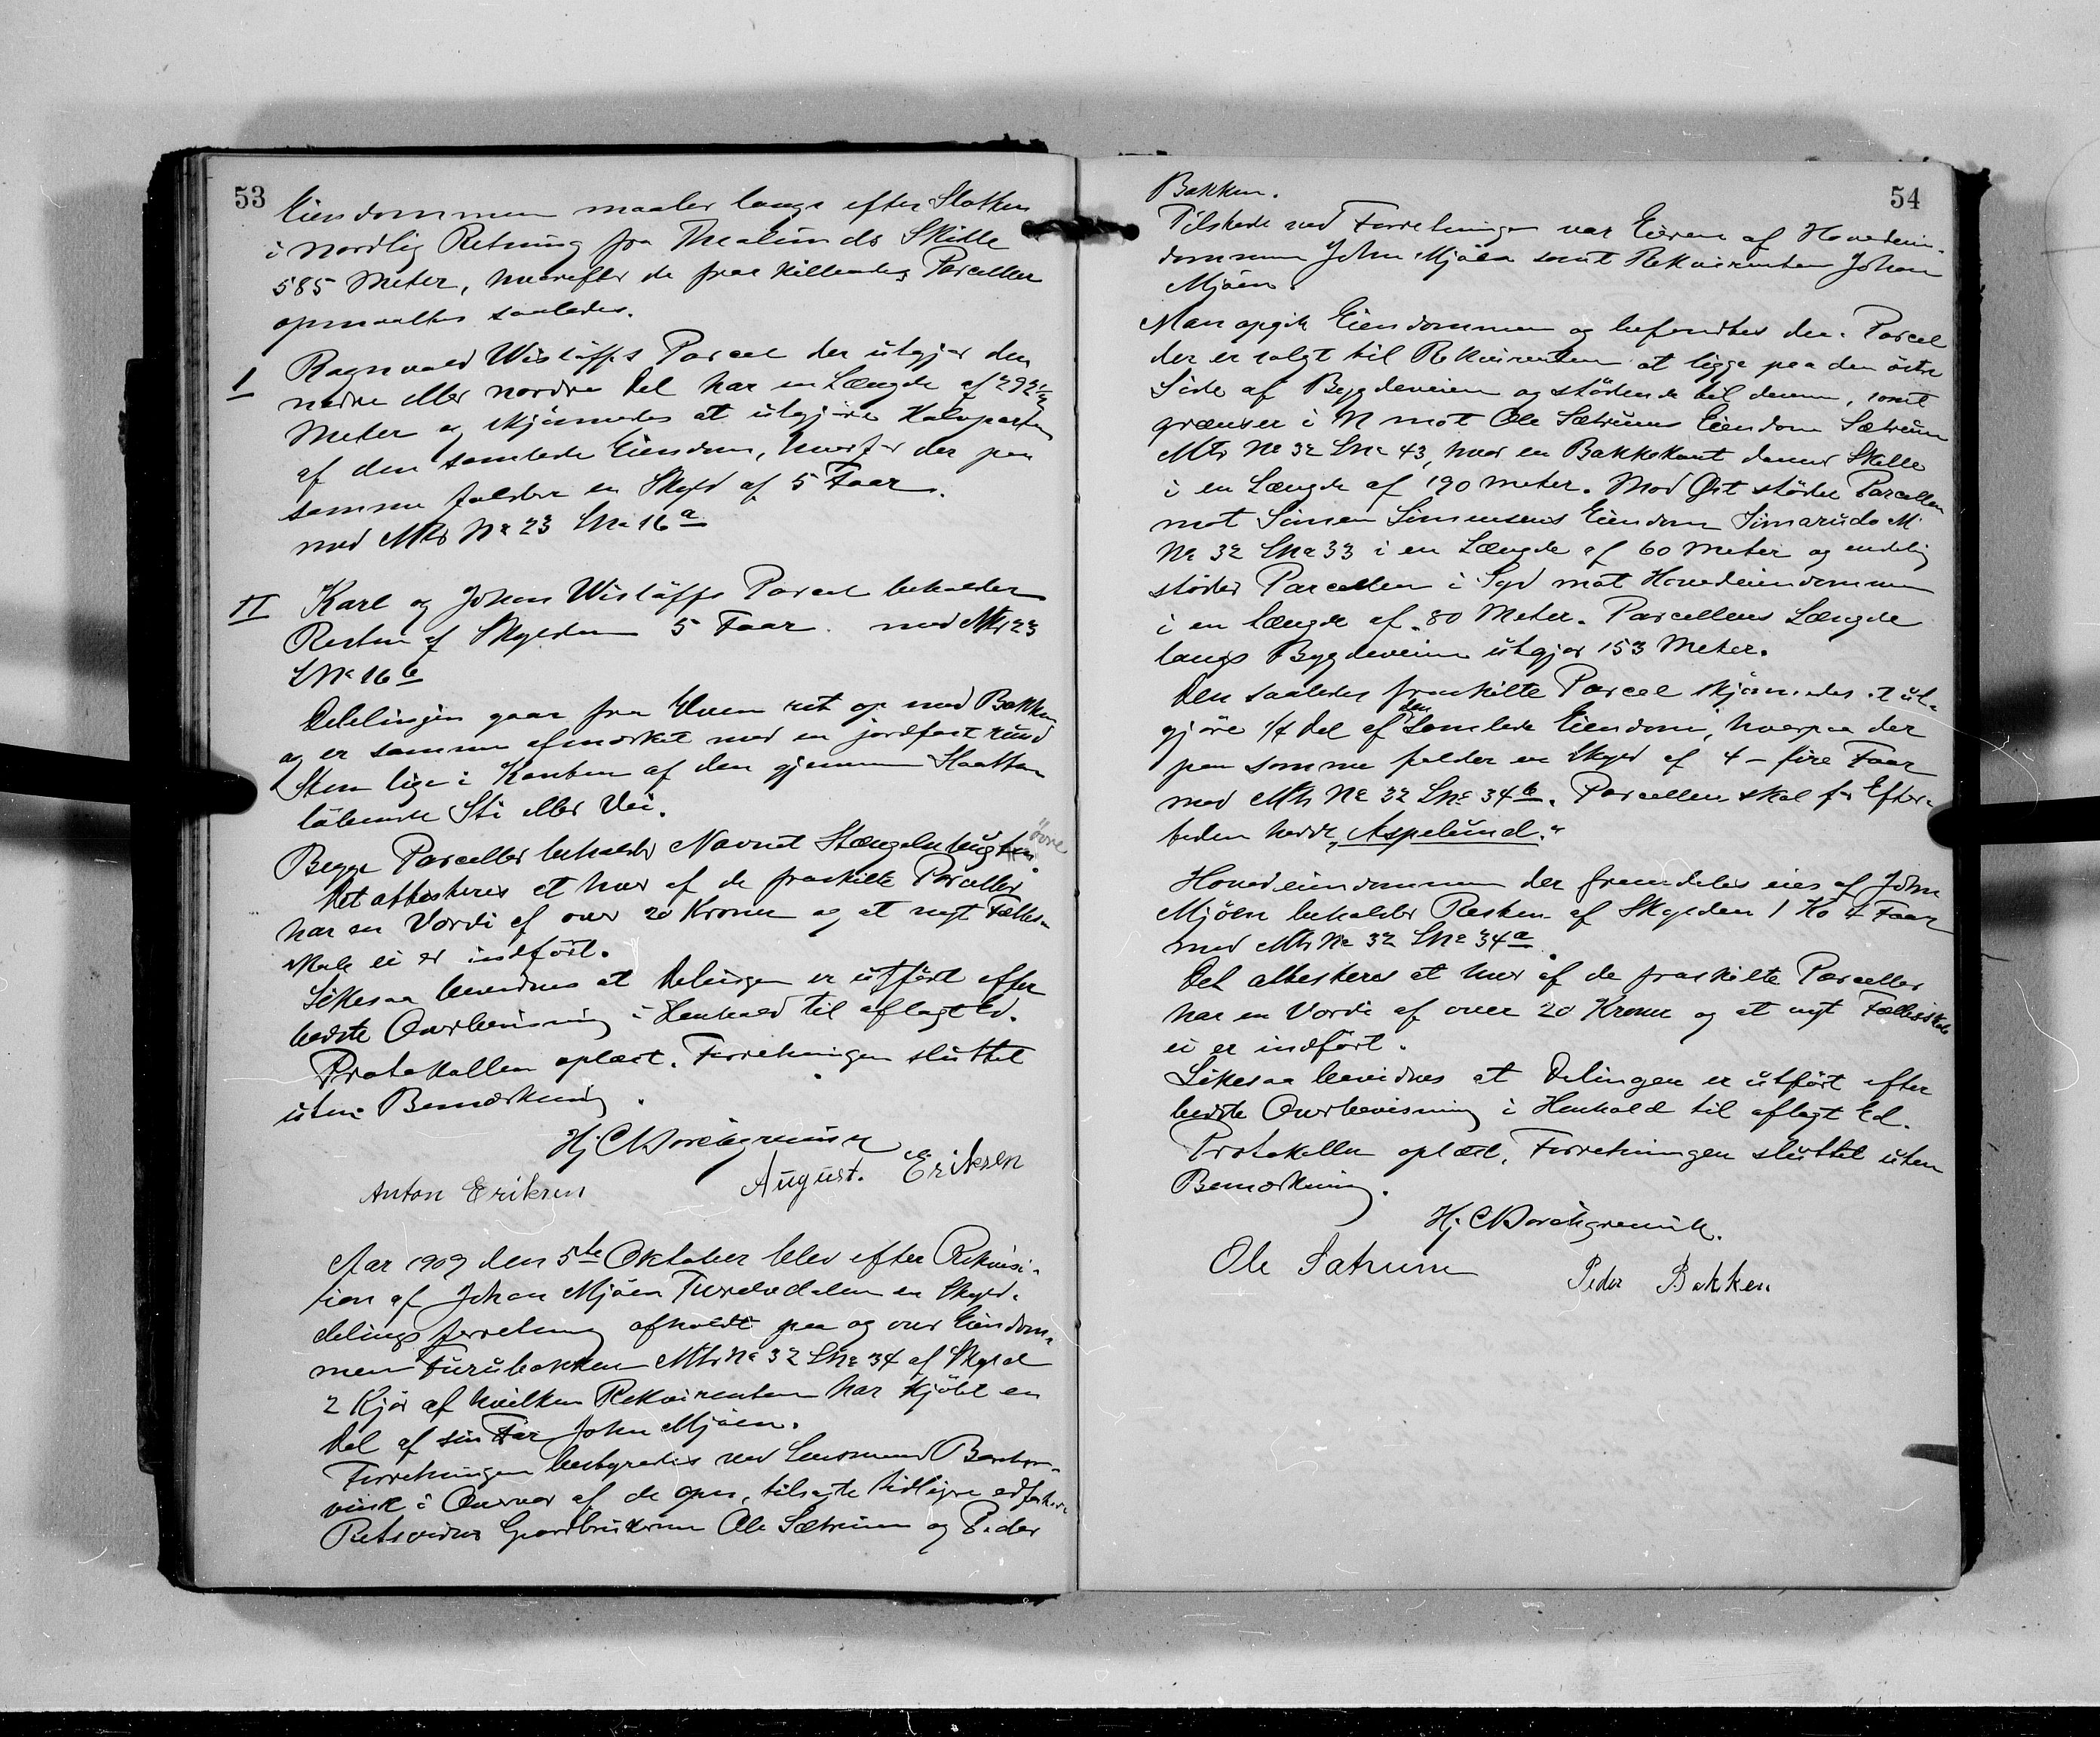 53
Eiendommen maaler langs efter Slatten
i nordlig Retning fra Thealunds Skille
585 Meter, hvorefter de fraskillendes Parceller
opmaaltes saaledes.
I Ragnvald Wislöffs Parcel der utgjør den
nedre eller nordre Del har en Længde af 292 1/2
Meter og skjønnedes at utgjøre Halvparten
af den samlede Eiendom, hvorfor der paa
samme falder en Skyld af 5 Faar.
med Mtr No 23 LNo 16a
II Karl og Johan Wislöffs Parcel beholder
Resten af Skylden 5 Faar. med Mtr 23
LNo 16b
Delelinjen gaar fra Elven ret op mod Bakken
og er samme afmærket med en jordfast rund
Sten lige i Kanten af den gjennem Slaatten
løbende Sti eller Vei.
Begge Parceller beholder Navnet Stængelnbugten
Øvre
Det attesteres at hver af de fraskilte Parceller
har en Værdi af over 20 Kroner og at nyt Fælles-
skab ei er indført.
Likesaa bevidnes at Delingen er utført efter
bedste Overbevisning i Henhold til aflagt Ed.
Protokollen oplæst. Forretningen sluttet
uten Bemærkning.
Hj. C Borchgrevink
Anton Eriksen August. Eriksen
Aar 1909 den 5te Oktober blev efter Rekvisi-
tion af Johan Mjøen en Skyld-
delingsforretning afholdt paa og over Eiendom-
men Furubakken Mtr No 32 LNo 34 af Skyld
2 Kjør af hvilken Rekvirenten har kjøbt en
Del af sin Far John Mjøen.
Forretningen bestyredes ved Lensmand Borchgre-
vink i Overvær af de opn. tilsagte tidligere edfæstede
Retsvidner Gaardbrukerne Ole Sætrum og Peder
54
Bakken.
Tilstede ved Forretningen var Eieren af Hovedeien-
dommen John Mjøen samt Rekvirenten Johan
Mjøen.
Man opgik Eiendommen og befandtes den Parcel
der er solgt til Rekvirenten at ligge paa den østre
Side af Bygdeveien og stødende til denne, samt
grænser i N mot Ole Sætrums Eiendom Sætrum
Mtr No 32 LNo 43, hvor en Bakkekant danner Skille
i en Længde af 190 meter. Mod Øst støder Parcellen
mot Simen Simensens Eiendom Simarud M.
No 32 LNo 33 i en Længde af 60 Meter og endelig
støder Parcellen i Syd mot Hovedeiendommen
i en længde af 80 Meter. Parcellens Længde
langs Bygdeveien utgjør 153 Meter.
Den saaledes fraskilte Parcel skjønnedes at ut-
gjøre 1/4 Del af den samlede Eiendom, hvorpaa der
paa samme falder en Skyld af 4 - fire Faar
med Mtr No 32 LNo 34b. Parcellen skal for Efter-
tiden hedde „Aspelund."
Hovedeiendommen der fremdeles eies af John
Mjøen beholder Resten af Skylden 1 Ko 4 Faar
med Mtr No 32 LNo 34a.
Det attesteres at hver af de fraskilte Parceller
har en Værdi af over 20 Kroner og at nyt Fællesskab
ei er indført.
Likesaa bevidnes at Delingen er utført efter
bedste Overbevisning i Henhold til aflagt Ed.
Protokollen oplæst. Forretningen sluttet uten
Bemærkning.
Hj. C Borchgrevink.
Ole Satrum Peder Bakken.